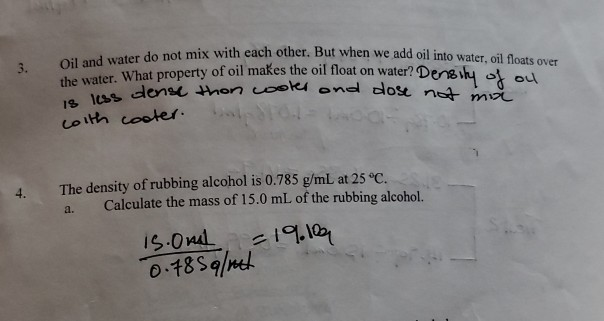 3. Oil and water do not mix with each other. But when we add oil into water, oil floats over
the water. What property of oil makes the oil float on water? Density of oil
is less dense than water and dose not mix
with water.
4. The density of rubbing alcohol is 0.785 g/mL at 25 °C.
a. Calculate the mass of 15.0 mL of the rubbing alcohol.
15.0 mL
= 19.10g
0.785g/mL